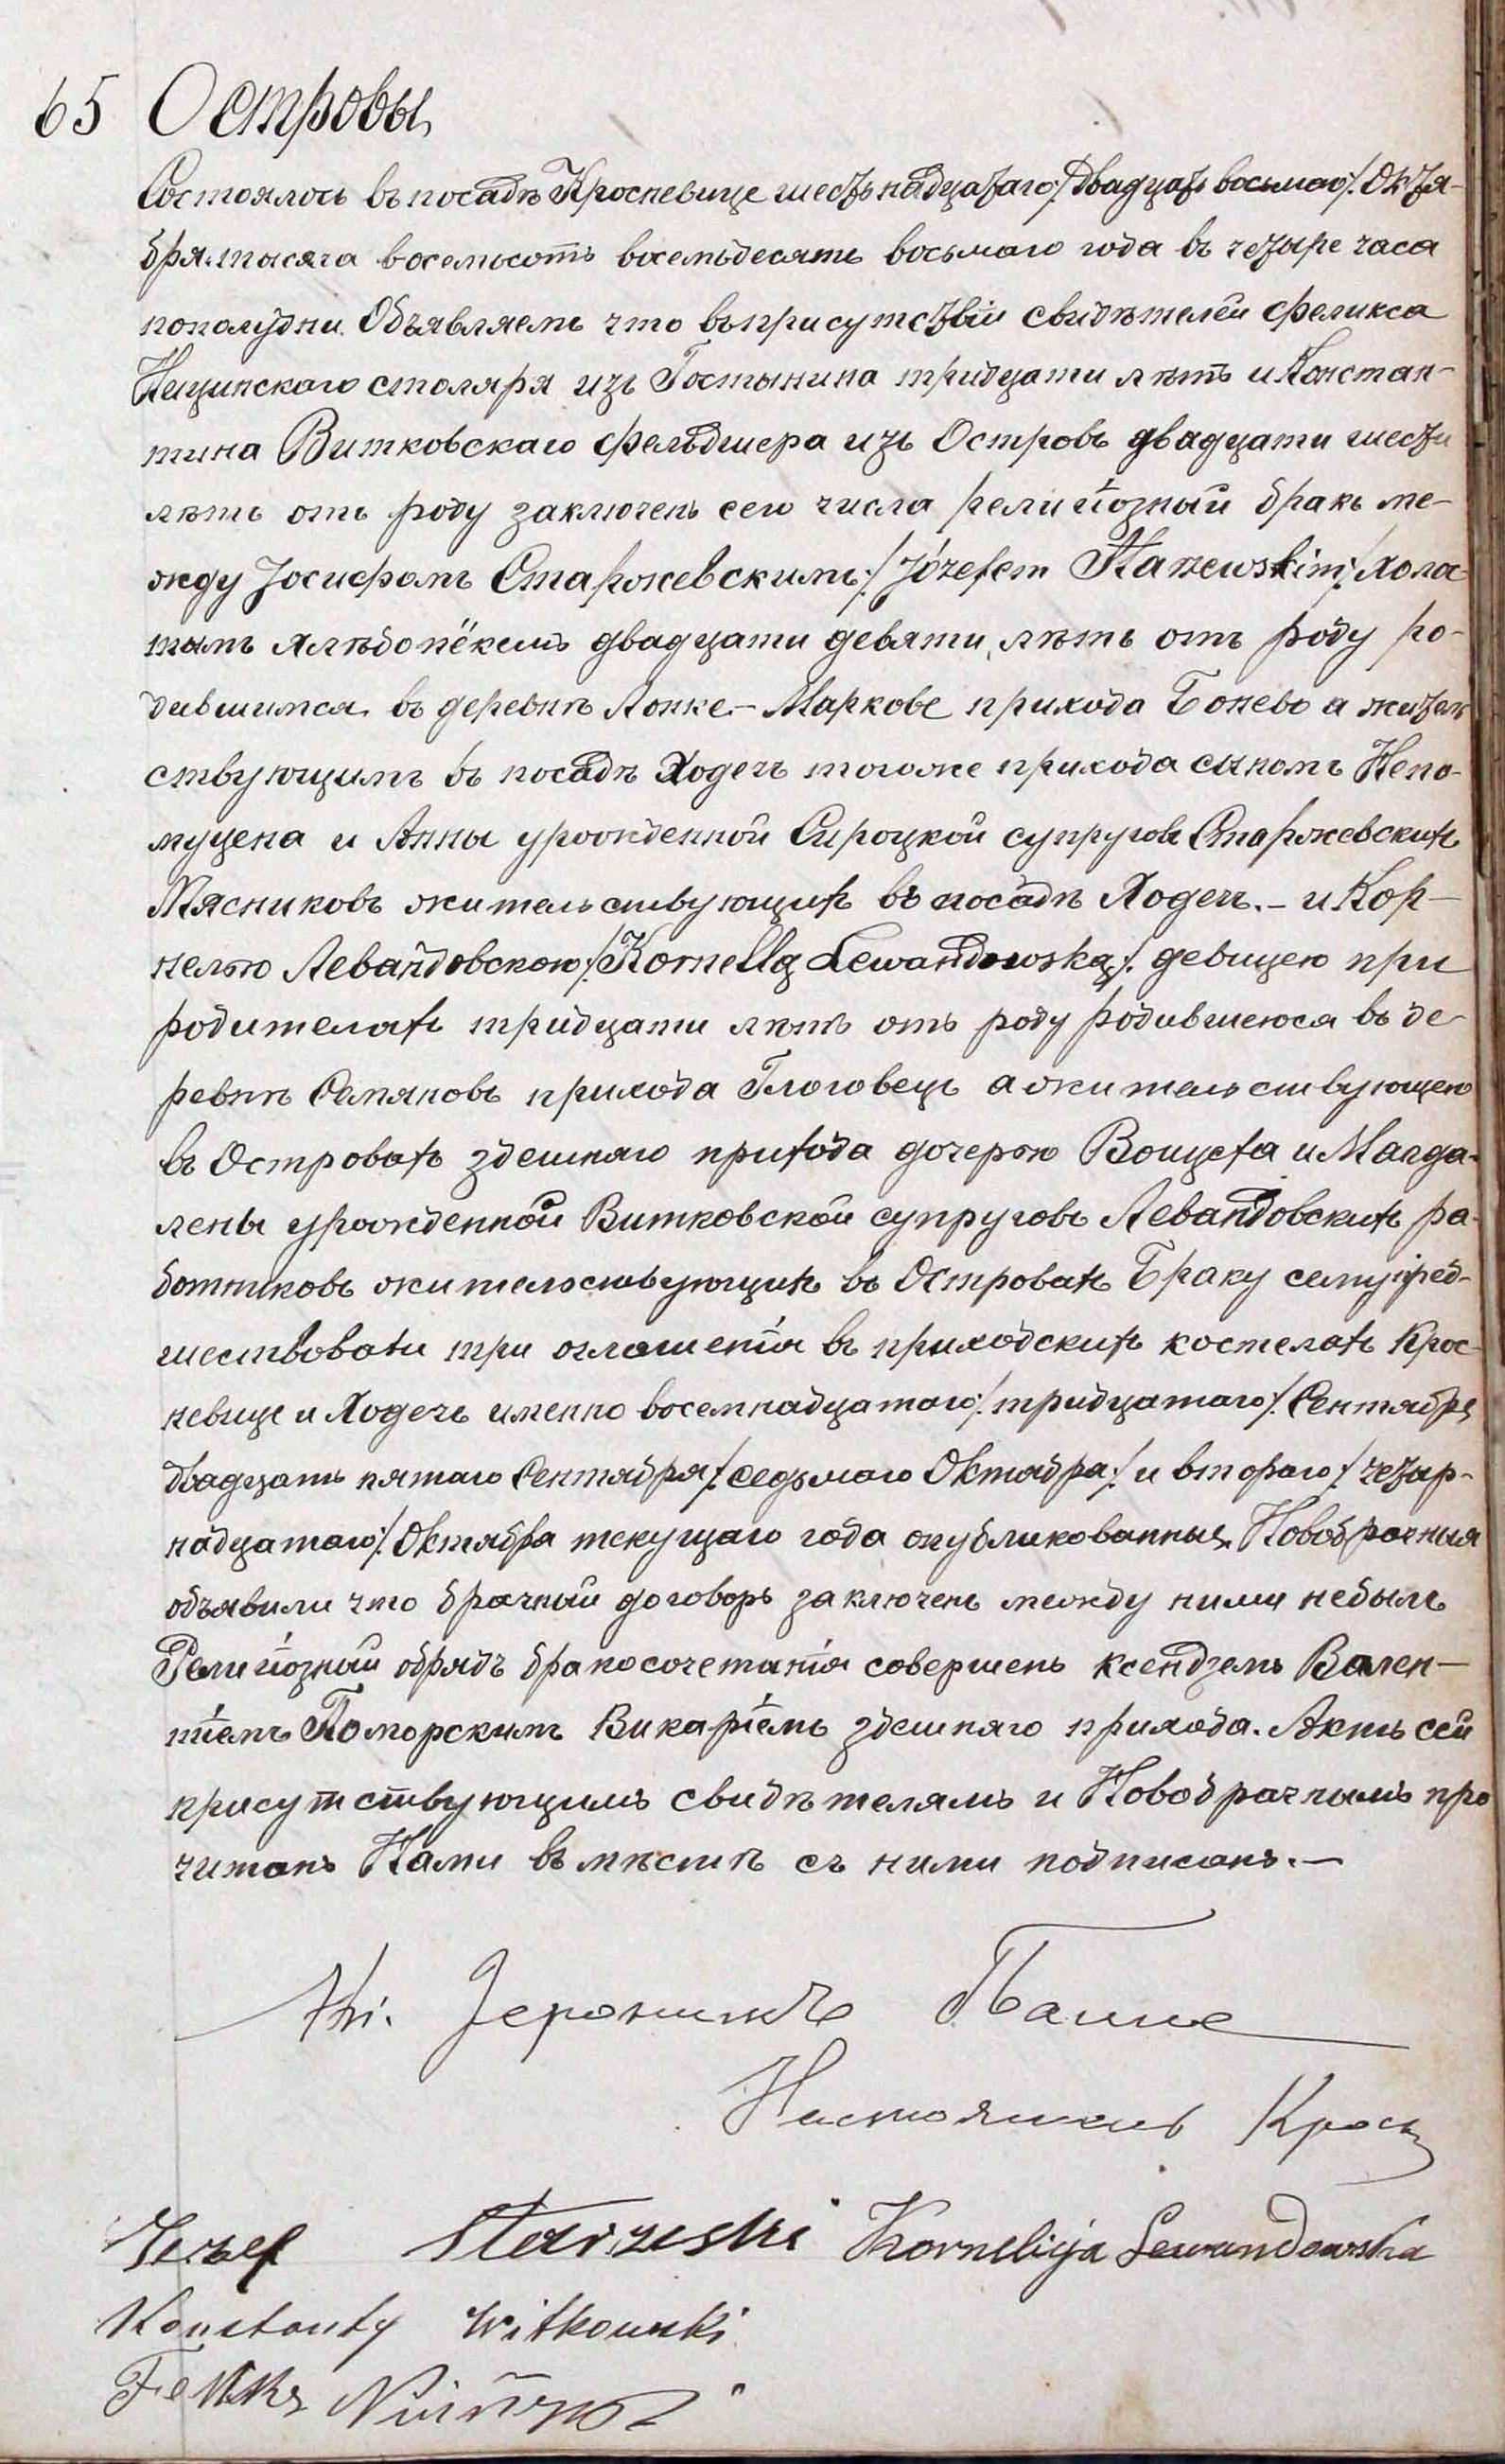 65 Островы
Состоялось въ посадѣ Кросневице шестьнадцатаго /:двадцать восьмаго:/ Октя-
бря тысяча восемьсотъ восемьдесятъ восьмаго года въ четыре часа
пополудни. Объявляемъ что въ присутствіи свидѣтелей Феликса
столяра изъ Гостынина тридцати лѣтъ и Констан-
тина Витковскаго фельдшера изъ Островъ двадцати шести
лѣтъ отъ роду заключенъ сего числа религіозный бракъ ме-
жду Іосифомъ Старжевскимъ /:Józefem Starzewskim:/ холос
тымъ хлѣбопёкемъ двадцати девяти лѣтъ отъ роду ро-
дившимся въ деревнѣ Лонке-Маркове прихода Бонево а житель
ствующимъ въ посадѣ Ходечъ тогоже прихода сыномъ Непо-
муцена и Анны урожденной Сироцкой супруговъ Старжевскихъ
Мясниковъ жительствующихъ въ посадѣ Ходечъ.- и Кор-
нелью Левандовскою /:Kornellą Lewandowską:/ девицею при
родителахъ тридцати лѣтъ отъ роду родившеюся въ де-
ревнѣ Семяновъ прихода Глоговецъ а жительствующею
въ Островахъ здешняго прихода дочерью Войцеха и Магда-
лены урожденной Витковской супруговъ Левандовскихъ ра-
ботниковъ жительствующихъ въ Островахъ Браку сему пред-
шествовали три оглашенія въ приходскихъ костелахъ Крос-
невице и Ходечъ именно восемнадцатаго /:тридцатаго:/ Сентября
двадцать пятаго Сентября /:седьмаго Октября:/ и втораго /:четыр-
надцатаго:/ Октября текущаго года опубликованныя. Новобрачныя
объявили что брачный договоръ заключенъ между ними небылъ
Религіозный обрядъ бракосочетанія совершенъ ксендземъ Вален-
тіемъ Поморскимъ Викаріемъ здешняго прихода. Актъ сей
присутствующимъ свидѣтелямъ и Новобрачнымъ про
читанъ Нами въ мѣстѣ съ ними подписанъ.—
Іеронимъ
Настоятель
Starzeski Kornelija Lewandowska
Konstanty Witkowski
Feliks